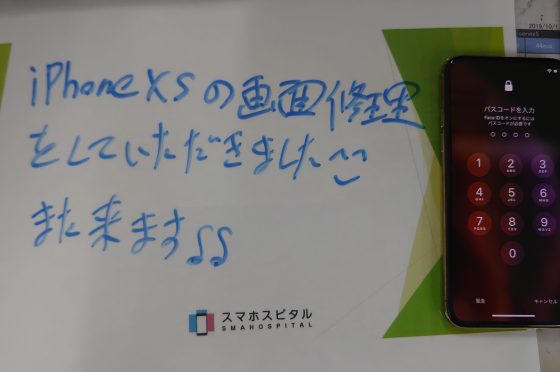 iPhone XSの画面修理
をしていただきました^^
また来ます♪♪
スマホスピタル
SMAHOSPITAL
2019/10/1
パスコードを入力
Face IDをオンにするには
パスコードが必要です
1
2
ABC
3
DEF
4
GHI
5
JKL
6
MNO
7
PQRS
8
TUV
9
WXYZ
0
緊急
キャンセル